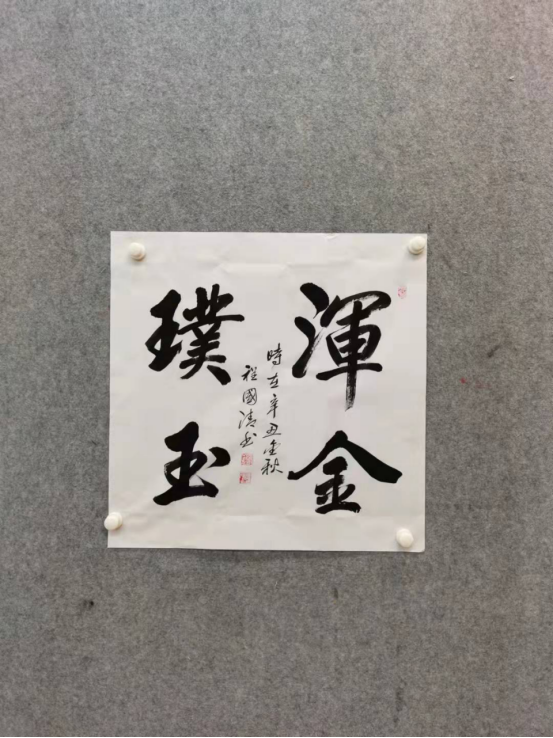 渾金
璞玉
時在辛丑金秋
程國清書